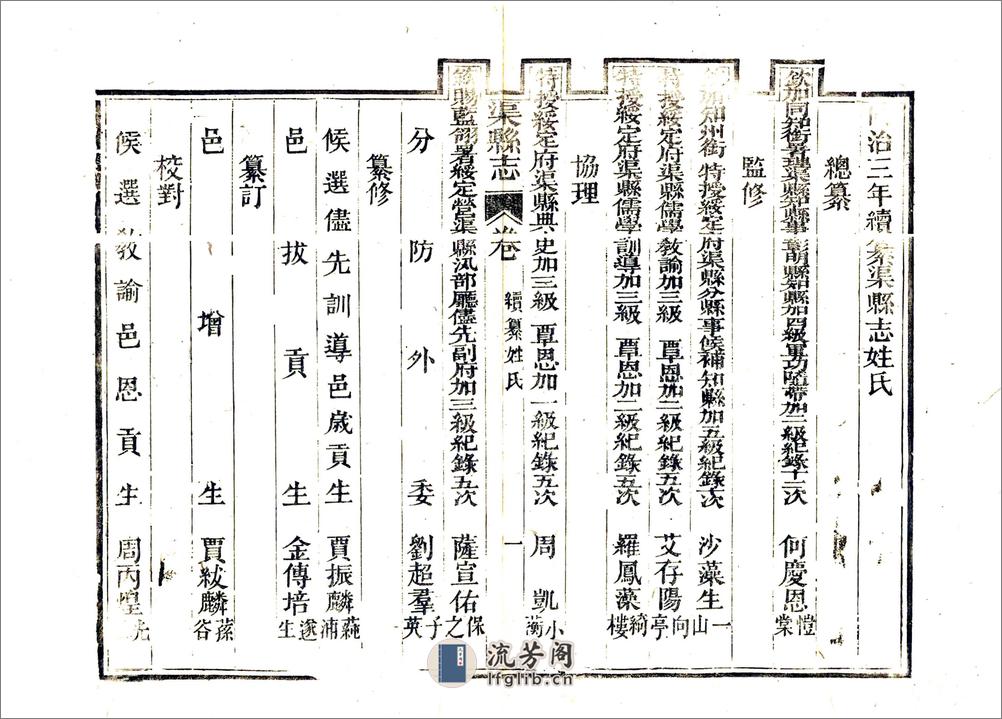 治三年續纂渠縣志姓氏
總纂
欽加同知銜署理渠縣知縣事彰明縣知縣加四級軍功隨帶加二級紀錄十二次 何慶恩愷棠
監修
加知州銜特授綏定府渠縣分縣事候補知縣加五級紀錄六次 沙藻生一山
特授綏定府渠縣儒學教諭加三級 覃恩加二級紀錄五次 艾存陽向亭
特授綏定府渠縣儒學訓導加三級 覃恩加二級紀錄五次 羅鳳藻綺樓
協理
特授綏定府渠縣典史加三級 覃恩加一級紀錄五次 周凱小蘅
渠縣志 卷 續纂姓氏 一
賜藍翎署綏定營渠縣汛部廳儘先副府加三級紀錄五次 薩宣佑保之
分防外委 劉超羣子英
纂修
候選儘先訓導邑歲貢生 賈振麟蒓浦
邑拔貢生 金傳培遂生
纂訂
邑增生 賈紱麟蓀谷
校對
候選教諭邑恩貢生 周丙煌
流芳阁
lfglib.cn